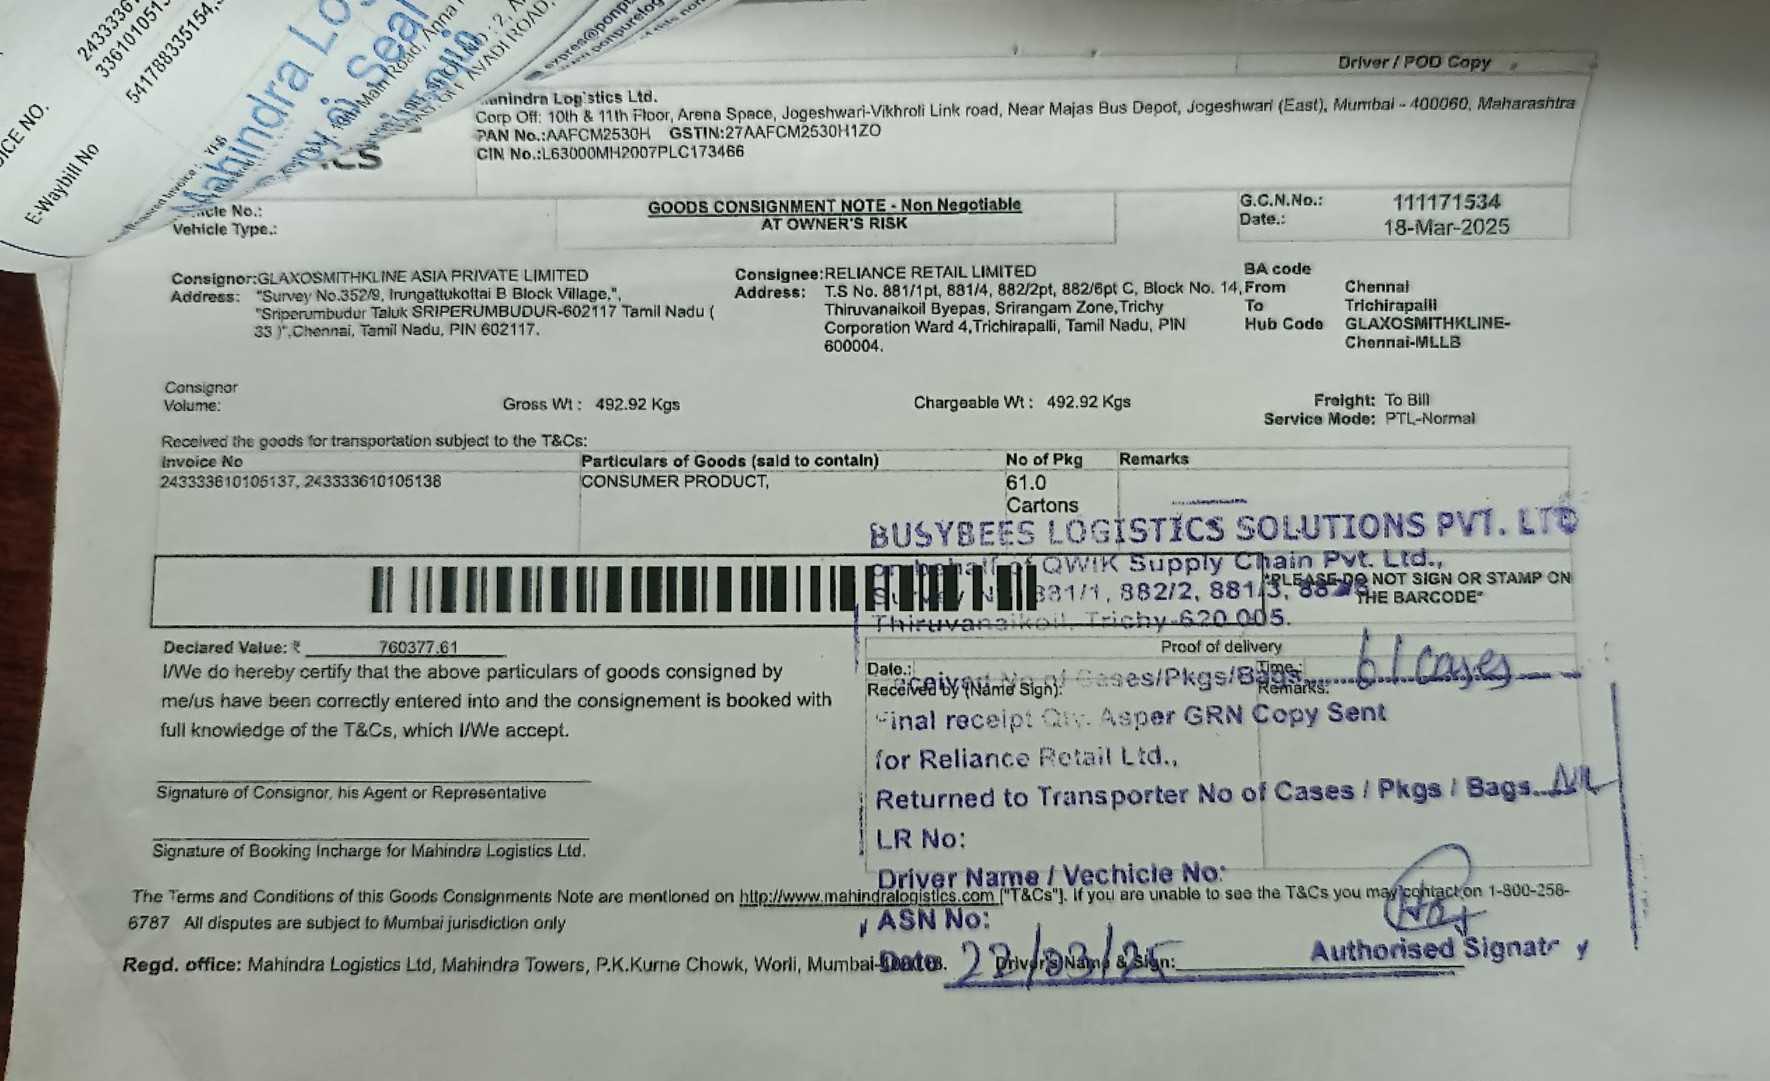 243333610
3361010513
541788335154,
ICE NO.
E-Waybill No
YES
Mahindra Lo
Copy of Seal
Driver / POD Copy
Mahindra Logistics Ltd.
Corp Off: 10th & 11th Floor, Arena Space, Jogeshwari-Vikhroli Link road, Near Majas Bus Depot, Jogeshwari (East), Mumbai - 400060, Maharashtra
PAN No.:AAFCM2530H GSTIN:27AAFCM2530H1ZO
CIN No.:L63000MH2007PLC173466
No.:
Vehicle Type.:
GOODS CONSIGNMENT NOTE - Non Negotiable
AT OWNER'S RISK
G.C.N.No.: 111171534
Date.: 18-Mar-2025
Consignor:GLAXOSMITHKLINE ASIA PRIVATE LIMITED
Address: "Survey No.352/9, Irungattukottai B Block Village,",
"Sriperumbudur Taluk SRIPERUMBUDUR-602117 Tamil Nadu (
33 )",Chennai, Tamil Nadu, PIN 602117.
Consignee:RELIANCE RETAIL LIMITED
Address: T.S No. 881/1pt, 881/4, 882/2pt, 882/6pt C, Block No. 14,
Thiruvanaikoil Byepas, Srirangam Zone,Trichy
Corporation Ward 4,Trichirapalli, Tamil Nadu, PIN
600004.
BA code
From Chennai
To Trichirapalli
Hub Code GLAXOSMITHKLINE-
Chennai-MLLB
Consignor
Volume:
Gross Wt : 492.92 Kgs
Chargeable Wt : 492.92 Kgs
Freight: To Bill
Service Mode: PTL-Normal
Received the goods for transportation subject to the T&Cs:
Invoice No Particulars of Goods (said to contain) No of Pkg Remarks
243333610105137, 243333610105138 CONSUMER PRODUCT, 61.0
Cartons
BUSYBEES LOGISTICS SOLUTIONS PVT. LTD
on behalf of QWIK Supply Chain Pvt. Ltd.,
881/1, 882/2, 881/3,
Thiruvanaikoil, Trichy-620 005.
*PLEASE DO NOT SIGN OR STAMP ON
THE BARCODE*
Declared Value: ₹ 760377.61
I/We do hereby certify that the above particulars of goods consigned by
me/us have been correctly entered into and the consignement is booked with
full knowledge of the T&Cs, which I/We accept.
Proof of delivery
Date.: Time.:
Received by (Name Sign): Remarks:
Received No of Cases/Pkgs/Bags 61 cases
Final receipt Qty. Asper GRN Copy Sent
for Reliance Retail Ltd.,
Returned to Transporter No of Cases / Pkgs / Bags... Nil
LR No:
Driver Name / Vechicle No:
ASN No:
Date 22/03/25
Authorised Signatr y
Signature of Consignor, his Agent or Representative
Signature of Booking Incharge for Mahindra Logistics Ltd.
The Terms and Conditions of this Goods Consignments Note are mentioned on http://www.mahindralogistics.com ["T&Cs"]. If you are unable to see the T&Cs you may contact on 1-800-258-
6787 All disputes are subject to Mumbai jurisdiction only
Regd. office: Mahindra Logistics Ltd, Mahindra Towers, P.K.Kurne Chowk, Worli, Mumbai- Driver's Name & Sign: